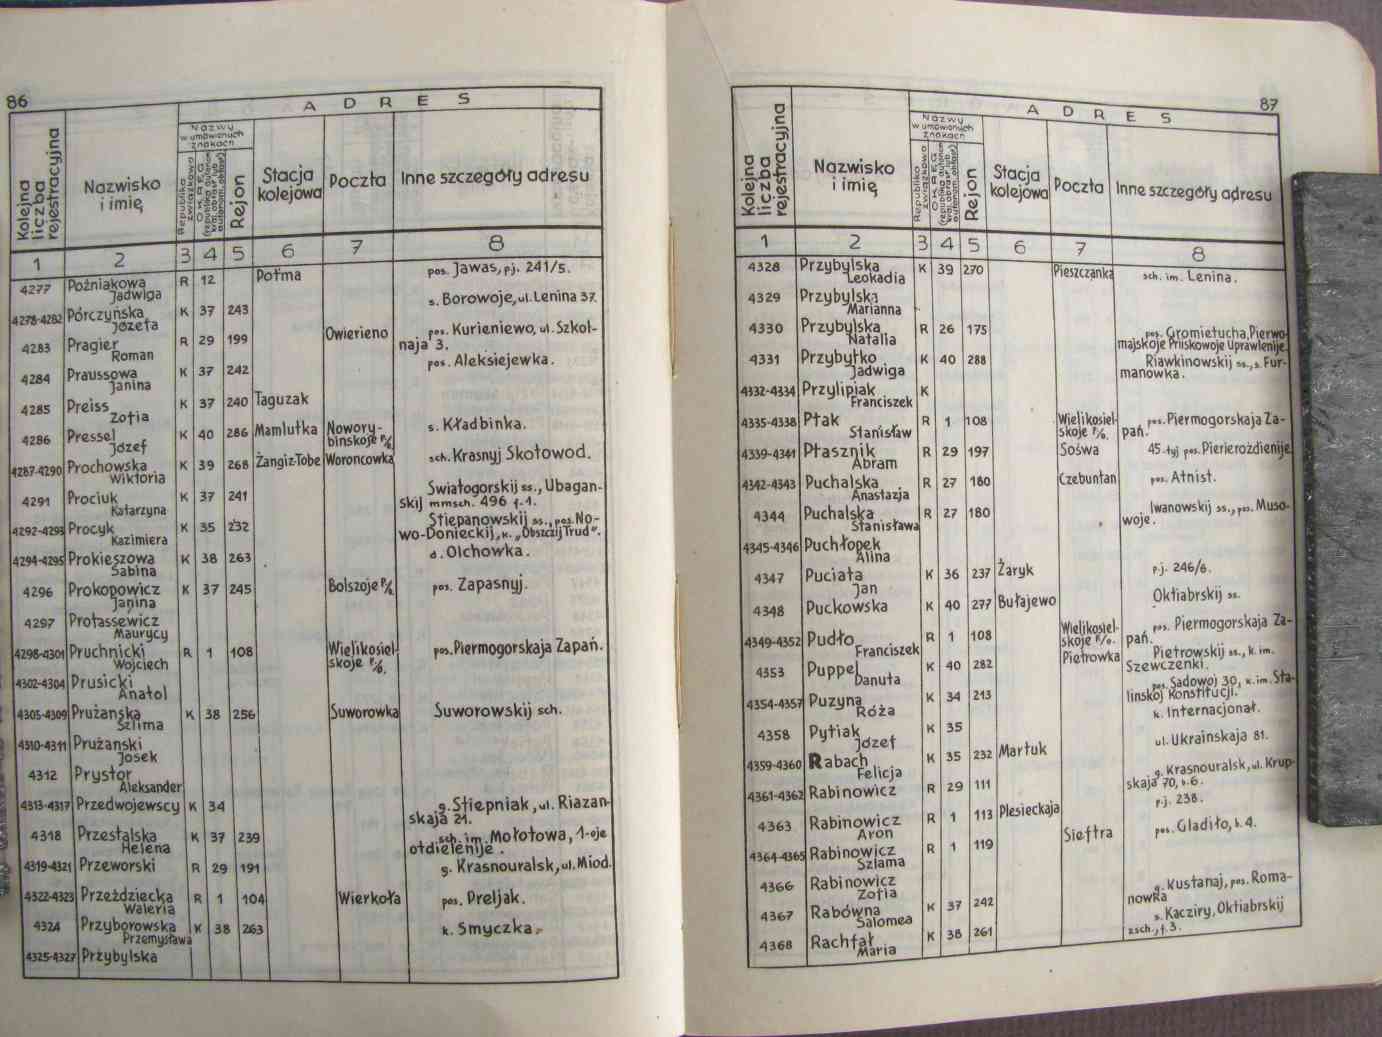 86
A D R E S
Kolejna liczba rejestracyjna
Nazwisko i imię
Nazwy w umówionych znakach
Republika związkowa
O K R Ę G
Rejon
Stacja kolejowa
Poczta
Inne szczegóły adresu
1 2 3 4 5 6 7 8
4277 Poźniakowa Jadwiga R 12 Potma pos. Jawas, pj. 241/5.
4278-4282 Pórczyńska Józefa K 37 243 s. Borowoje, ul. Lenina 37.
4283 Pragier Roman R 29 199 Owierieno pos. Kurieniewo, ul. Szkol-
naja 3.
4284 Praussowa Janina K 37 242 pos. Aleksiejewka.
4285 Preiss Zofia K 37 240 Taguzak
4286 Pressel Józef K 40 286 Mamlutka Noworybinskoje P/o s. Kładbinka.
4287-4290 Prochowska Wiktoria K 39 268 Żangiz-Tobe Woroncowka sch. Krasnyj Skotowod.
4291 Prociuk Katarzyna K 37 241 Swiatogorskij ss., Ubagan-
skij mmsch. 496 f.1.
4292-4293 Procyk Kazimiera K 35 232 Stiepanowskij ss., pos. No-
wo-Donieckij, k. „Obszczij Trud".
4294-4295 Prokieszowa Sabina K 38 263 d. Olchowka.
4296 Prokopowicz Janina K 37 245 Bolszoje P/o pos. Zapasnyj.
4297 Protassewicz Maurycy
4298-4301 Pruchnicki Wojciech R 1 108 Wielikosielskoje P/o. pos. Piermogorskaja Zapań.
4302-4304 Prusicki Anatol
4305-4309 Prużańska Szlima K 38 256 Suworowka Suworowskij sch.
4310-4311 Prużanski Josek
4312 Prystor Aleksander
4313-4317 Przedwojewscy K 34 g. Stiepniak, ul. Riazan-
skaja 21.
4318 Przestalska Helena K 37 239 sch. im. Mołotowa, 1-oje
otdielenije.
4319-4321 Przeworski R 29 191 g. Krasnouralsk, ul. Miod.
4322-4323 Przeździecka Waleria R 1 104 Wierkoła pos. Preljak.
4324 Przyborowska Przemysława K 38 263 k. Smyczka.
4325-4327 Przybylska
87
A D R E S
Kolejna liczba rejestracyjna
Nazwisko i imię
Nazwy w umówionych znakach
Republika związkowa
O K R Ę G
Rejon
Stacja kolejowa
Poczta
Inne szczegóły adresu
1 2 3 4 5 6 7 8
4328 Przybylska Leokadia K 39 270 Pieszczanka sch. im. Lenina.
4329 Przybylska Marianna
4330 Przybylska Natalia R 26 175 pos. Gromietucha, Pierwo-
majskoje Priiskowoje Uprawlenije.
4331 Przybytko Jadwiga K 40 288 Riawkinowskij ss., s. Fur-
manowka.
4332-4334 Przylipiak Franciszek K
4335-4338 Ptak Stanisław R 1 108 Wielikosielskoje P/o. pos. Piermogorskaja Za-
pań.
4339-4341 Ptasznik Abram R 29 197 Sośwa 45-tyj pos. Pierierożdienije
4342-4343 Puchalska Anastazja R 27 180 Czebuntan pos. Atnist.
4344 Puchalska Stanisława R 27 180 Iwanowskij ss., pos. Muso-
woje.
4345-4346 Puchłopek Alina
4347 Puciata Jan K 36 237 Żaryk pj. 246/6.
4348 Puckowska K 40 277 Bułajewo Oktiabrskij ss.
4349-4352 Pudło Franciszek R 1 108 Wielikosielskoje P/o. pos. Piermogorskaja Za-
pań.
4353 Puppel Danuta K 40 282 Pietrowka Pietrowskij ss., k. im.
Szewczenki.
4354-4357 Puzyna Róża K 34 213 pos. Sadowoj 30, k. im. Sta-
linskoj Konstitucji.
4358 Pytiak Józef K 35 k. Internacjonał.
4359-4360 Rabach Felicja K 35 232 Martuk ul. Ukrainskaja 81.
4361-4362 Rabinowicz R 29 111 g. Krasnouralsk, ul. Krup-
skaja 70, b. 6.
4363 Rabinowicz Aron R 1 113 Plesieckaja pj. 238.
4364-4365 Rabinowicz Szlama R 1 119 Sieftra pos. Gladiło, b. 4.
4366 Rabinowicz Zofia
4367 Rabówna Salomea K 37 242 g. Kustanaj, pos. Roma-
nowka
4368 Rachfał Maria K 38 261 s. Kacziry, Oktiabrskij
zsch., f. 3.